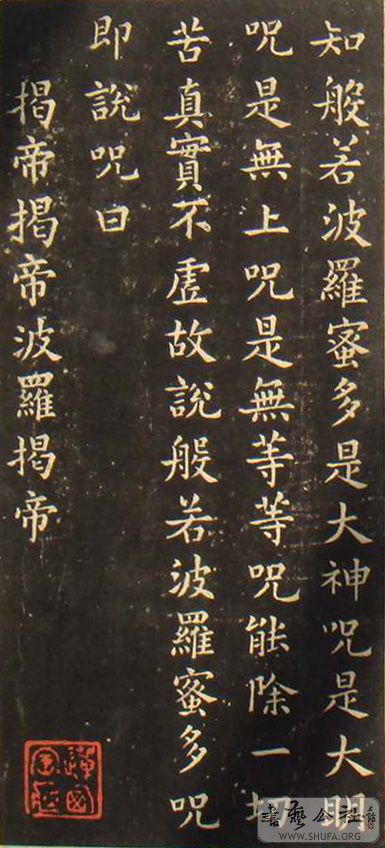 知般若波羅蜜多是大神咒是大明
咒是無上咒是無等等咒能除一切
苦真實不虛故說般若波羅蜜多咒
即說咒曰
揭帝揭帝波羅揭帝
書藝公社
WWW.SHUFA.ORG